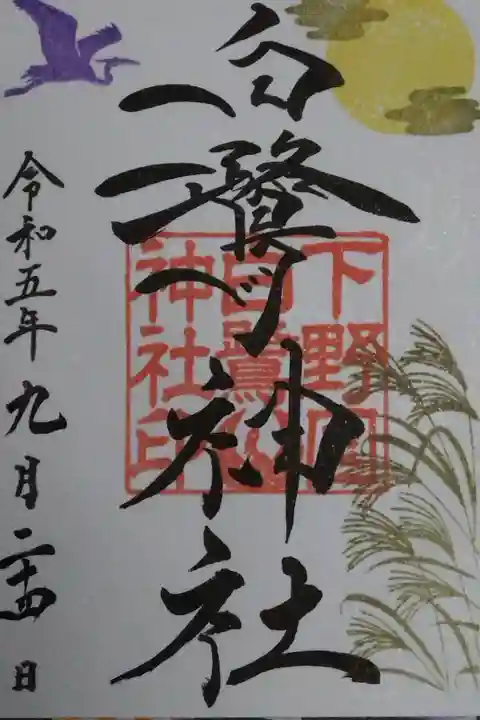 白鷺神社
下野国
白鷺
神社印
令和五年九月二十四日